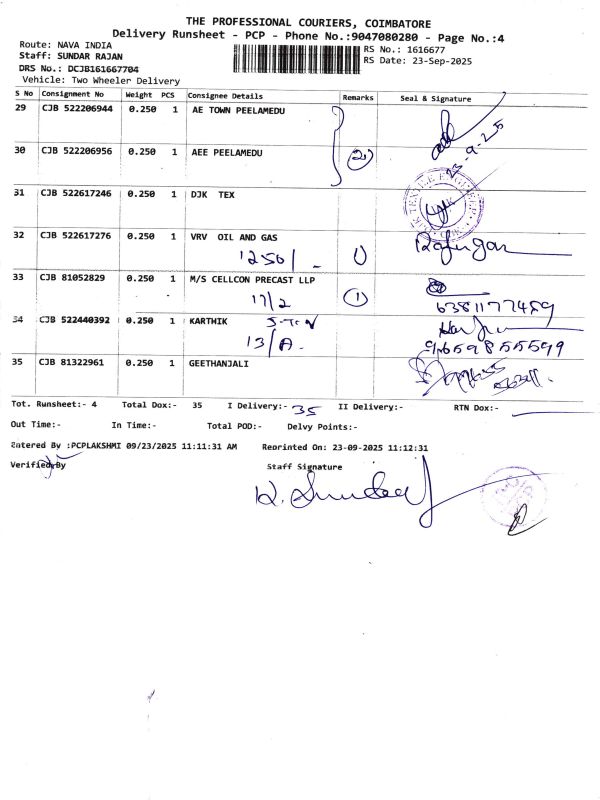 THE PROFESSIONAL COURIERS, COIMBATORE
Delivery Runsheet - PCP - Phone No.:9047080280 - Page No.:4
Route: NAVA INDIA
RS No.: 1616677
Staff: SUNDAR RAJAN
RS Date: 23-Sep-2025
DRS No.: DCJB161667704
Vehicle: Two Wheeler Delivery
S No Consignment No Weight PCS Consignee Details Remarks Seal & Signature
29 CJB 522206944 0.250 1 AE TOWN PEELAMEDU
23-9-25
30 CJB 522206956 0.250 1 AEE PEELAMEDU 2
31 CJB 522617246 0.250 1 DJK TEX
32 CJB 522617276 0.250 1 VRV OIL AND GAS
1256/- 1
33 CJB 81052829 0.250 1 M/S CELLCON PRECAST LLP
17/2 1 6381177489
34 CJB 522440392 0.250 1 KARTHIK
13/A. 9659855599
35 CJB 81322961 0.250 1 GEETHANJALI
Tot. Runsheet:- 4 Total Dox:- 35 I Delivery:- 35 II Delivery:- RTN Dox:-
Out Time:- In Time:- Total POD:- Delvy Points:-
Entered By :PCPLAKSHMI 09/23/2025 11:11:31 AM Reprinted On: 23-09-2025 11:12:31
Verified By Staff Signature